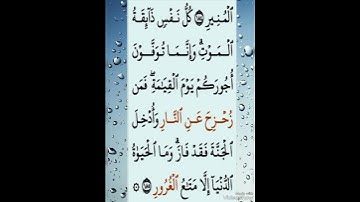 ٱلْمُنِيرِ ١٨٤ كُلُّ نَفْسٍ ذَآئِقَةُ
ٱلْمَوْتِ ۗ وَإِنَّمَا تُوَفَّوْنَ
أُجُورَكُمْ يَوْمَ ٱلْقِيَـٰمَةِ ۖ فَمَن
زُحْزِحَ عَنِ ٱلنَّارِ وَأُدْخِلَ
ٱلْجَنَّةَ فَقَدْ فَازَ ۗ وَمَا ٱلْحَيَوٰةُ
ٱلدُّنْيَآ إِلَّا مَتَـٰعُ ٱلْغُرُورِ ١٨٥